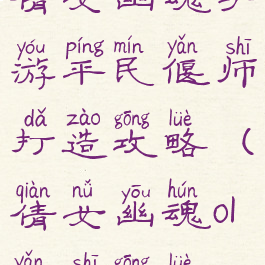 倩女幽魂手
yóu píng mín yǎn shī
游平民偃师
dǎ zào gōng lüè
打造攻略（
qiàn nǚ yōu hún
倩女幽魂01
yǎn shī gōng lüè